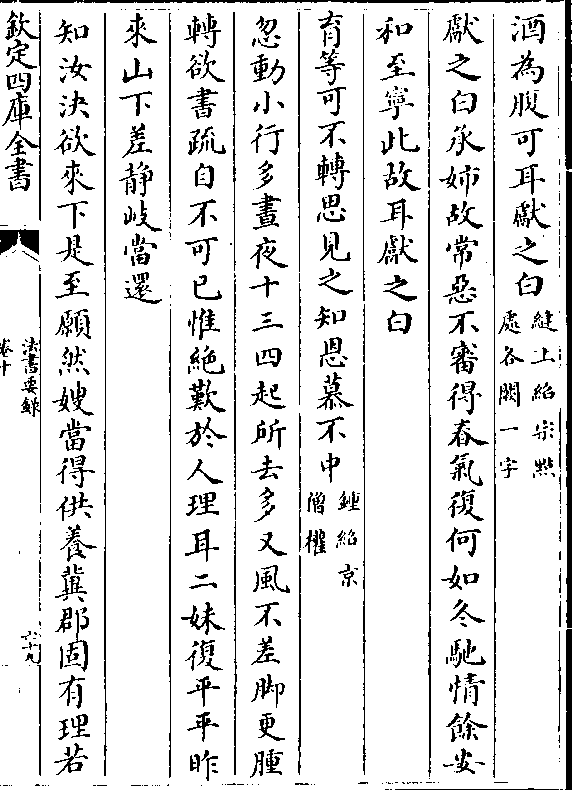 酒為腹可耳獻之白
縫上紹宗㸃
處各闕一字
獻之白承姊故常惡不審得春氣復何如冬馳情餘安
和至寧此故耳獻之白
育等可不轉思見之知恩慕不申
縫紹京
僧權
忽動小行多晝夜十三四起所去多又風不差脚更腫
轉欲書疏自不可已惟絶歎於人理耳二妹復平平昨
來山下差静岐當還
知汝決欲來下是至願然嫂當得供養冀郡固有理若
欽定四庫全書
法書要録
卷十
六十九